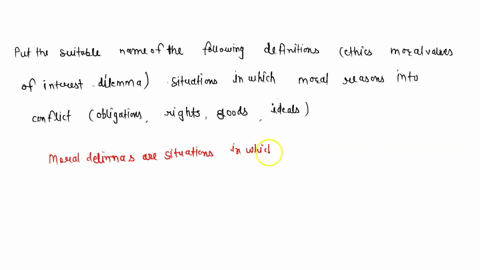 Put the suitable name of the following definitions (ethics moral values
of interest dilemma) situations in which moral reasons into
conflict (obligations, rights, goods, ideals)
Moral delimas are situations in which